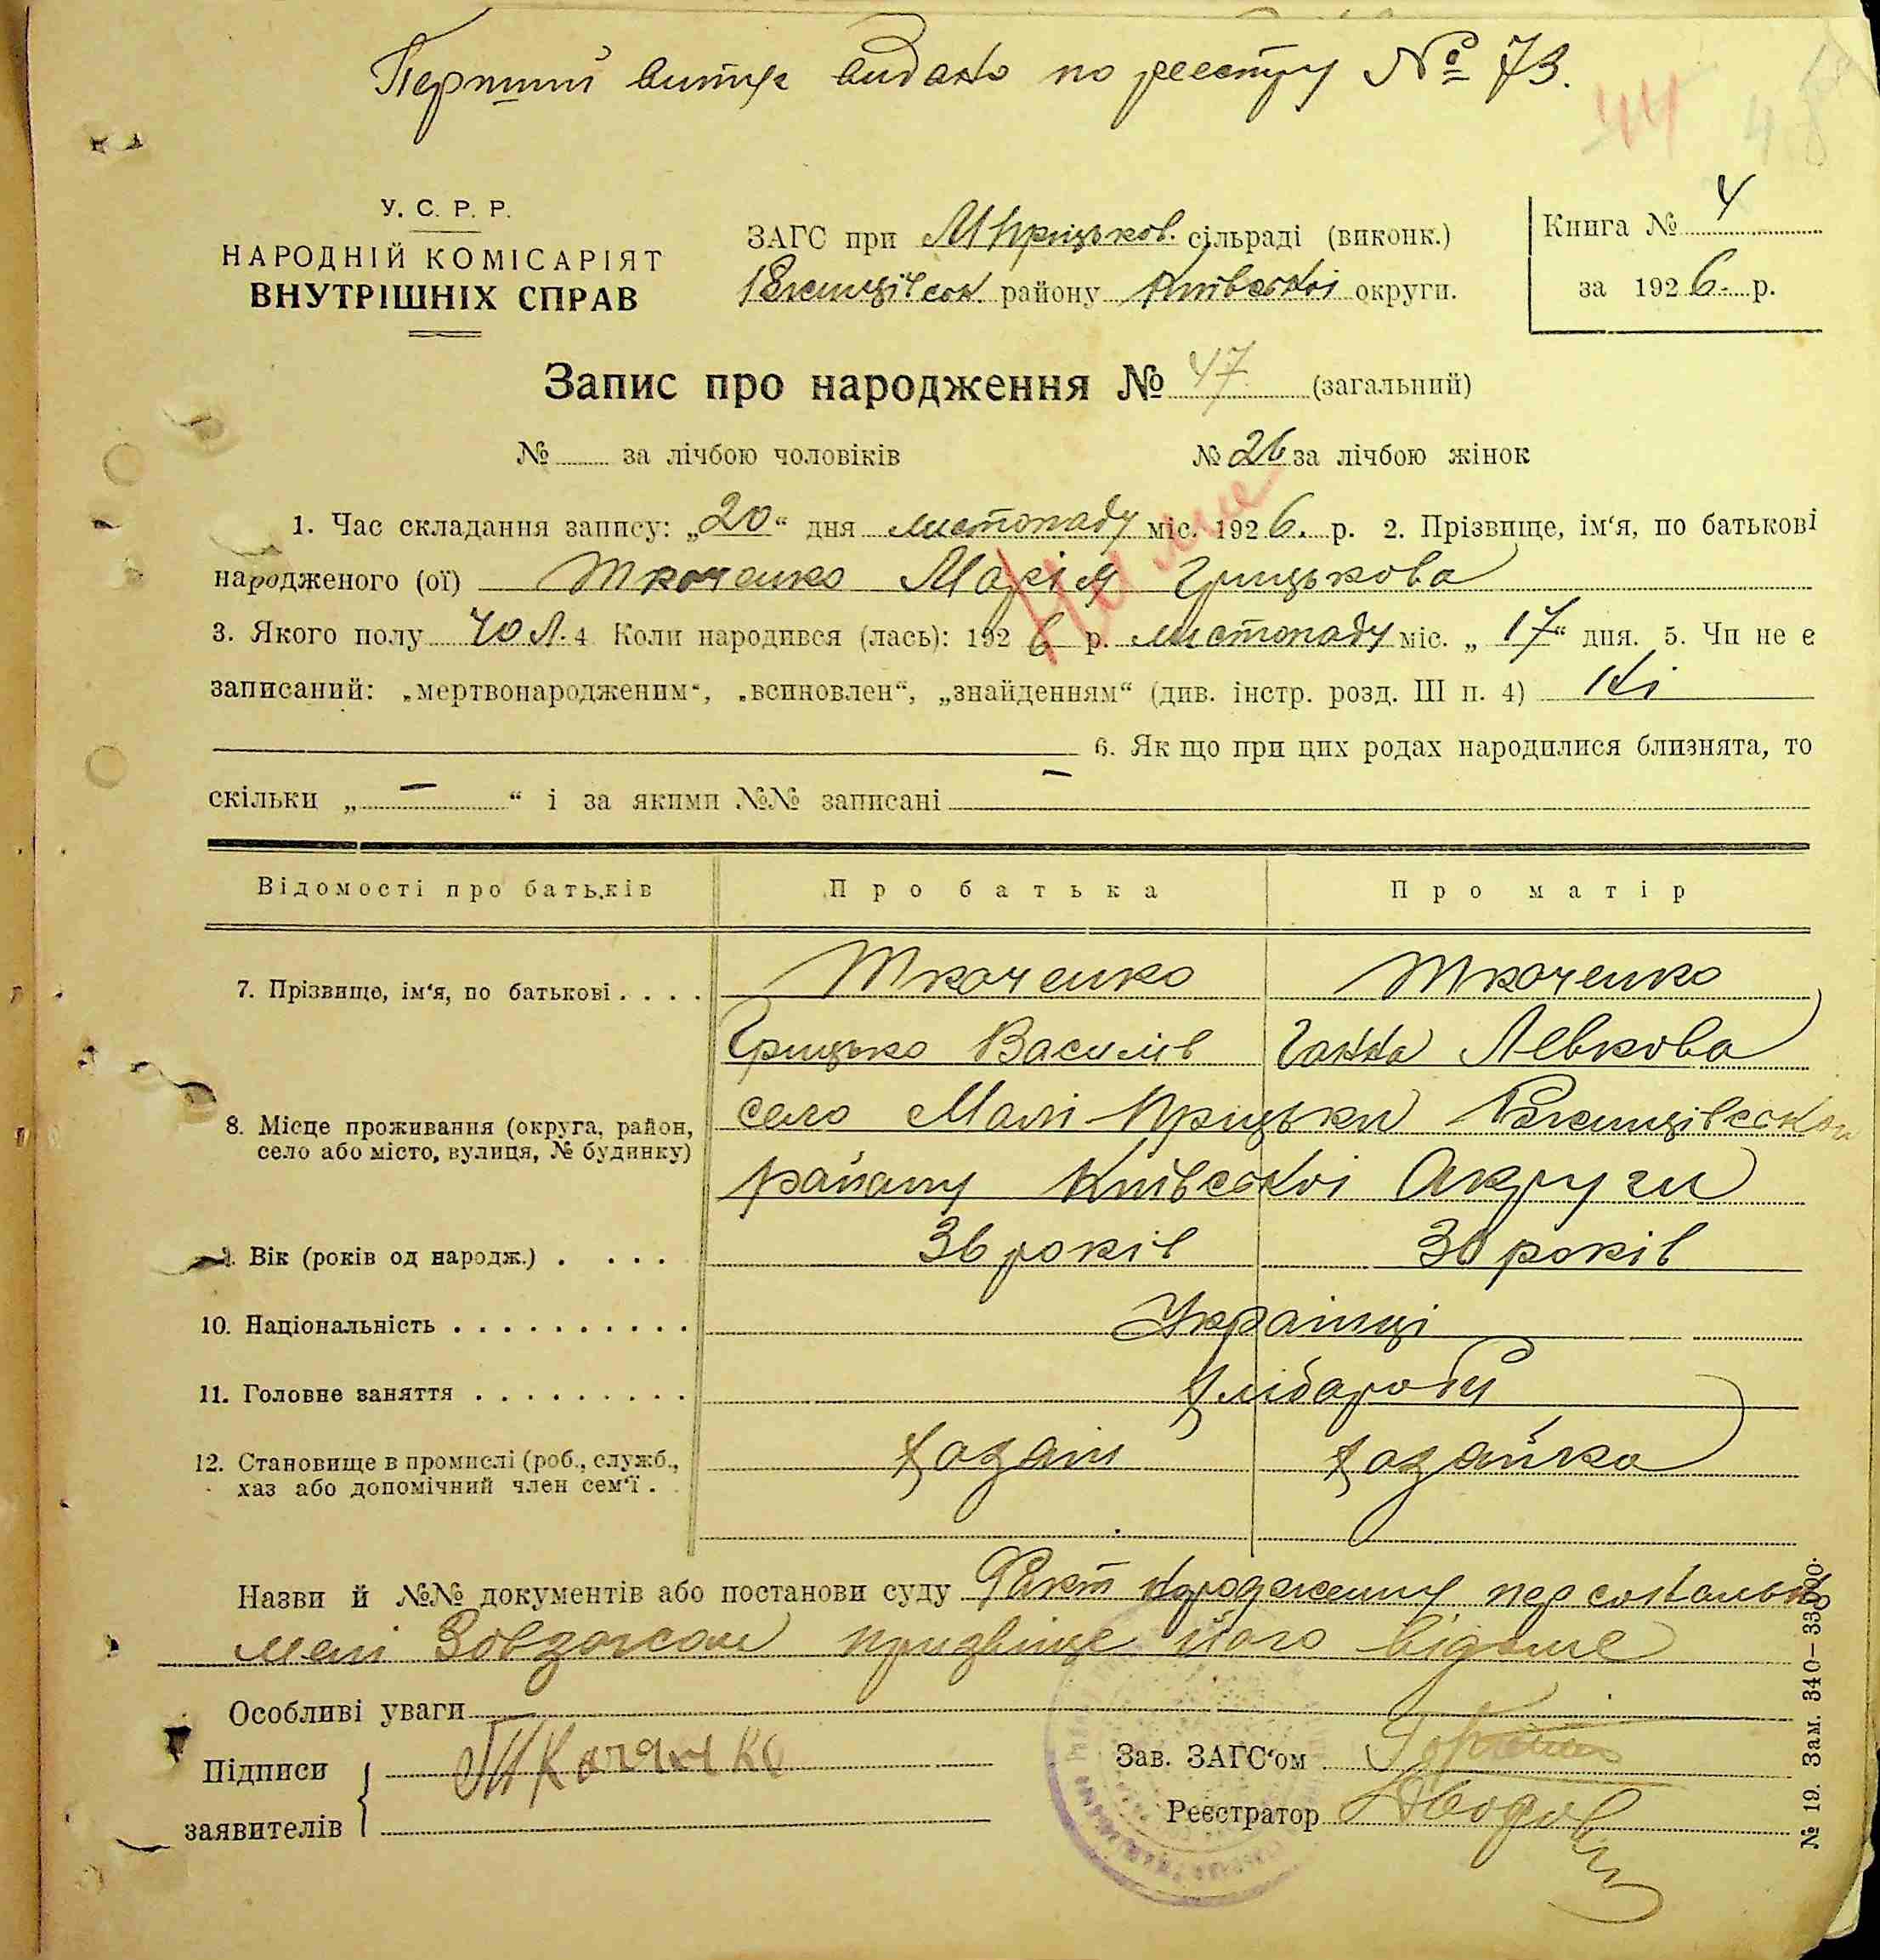 Перший витяг видано по реестру № 73.
44 48
У. С. Р. Р.
НАРОДНІЙ КОМІСАРІЯТ
ВНУТРІШНІХ СПРАВ
ЗАГС при М Прицьков. сільраді (виконк.)
Ржищівськ району Київської округи.
Книга № 4
за 1926. р.
Запис про народження № 47 (загальний)
№ за лічбою чоловіків
№ 26 за лічбою жінок
1. Час складання запису: „20“ дня листопаду міс. 1926. р. 2. Прізвище, ім‘я, по батькові
народженого (ої) Ткаченко Марія Грицькова
3. Якого полу 4. Коли народився (лась): 1926 р. листопаду міс. „17“ дня. 5. Чи не є
записаний: „мертвонародженим“, „всиновлен“, „знайденням“ (див. інстр. розд. III п. 4) Ні
6. Як що при цих родах народилися близнята, то
скільки „ — “ і за якими №№ записані —
Відомості про батьків Про батька Про матір
7. Прізвище, ім‘я, по батькові . . . . Ткаченко Ткаченко
Грицько Василів Ганна Левкова
8. Місце проживання (округа, район, село або місто, вулиця, № будинку) село Малі-Прицьки Ржищівськои
району Київської Округи
9. Вік (років од народж.) . . . . 36 років 30 років
10. Національність . . . . . . . . . . Українці
11. Головне заняття . . . . . . . . . Хліборобы
12. Становище в промислі (роб., служб., хаз або допомічний член сем‘ї . . Хазаін Хазайка
Назви й №№ документів або постанови суду Факт народженну
призвіще його відоме
Особливі уваги
Підписи
заявителів
Ткачянко
Зав. ЗАГС‘ом
Реєстратор
№ 19. Зам. 340—33000.